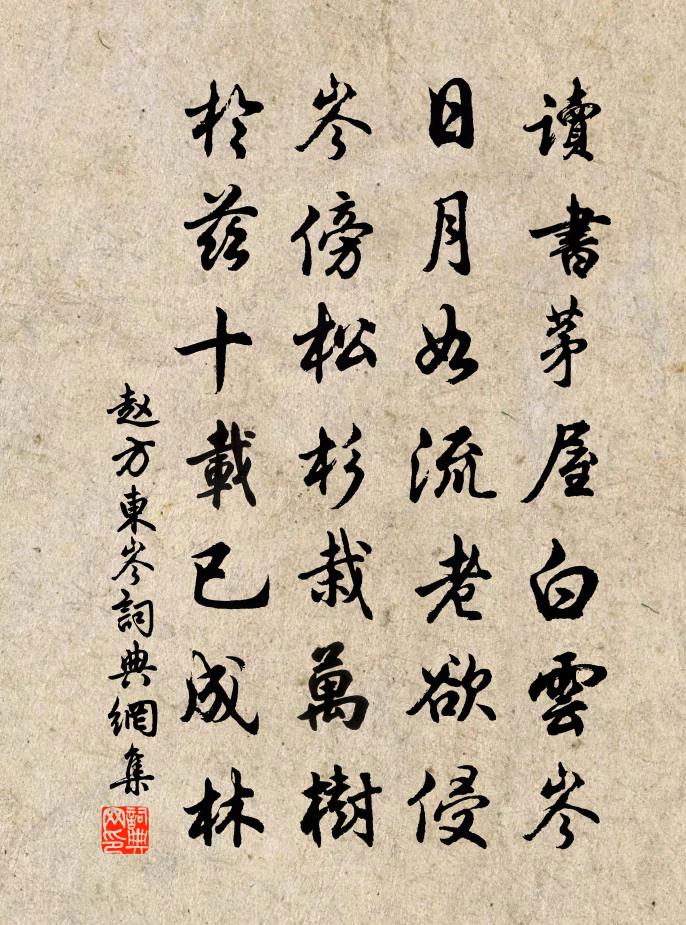 讀書茅屋白雲岑
日月如流老欲侵
岑傍松杉栽萬樹
於茲十載已成林
赵方東岑詞典網集
詞典网印